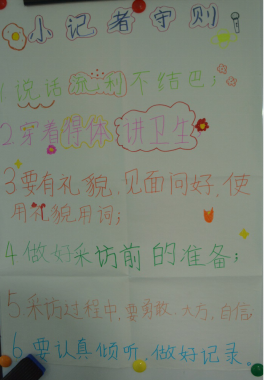 小记者守则:
1 说话流利不结巴;
2 穿着得体 讲卫生
3 要有礼貌、见面问好,使
用礼貌用词;
4 做好采访前的准备;
5. 采访过程中,要勇敢、大方、自信;
6. 要认真倾听,做好记录。